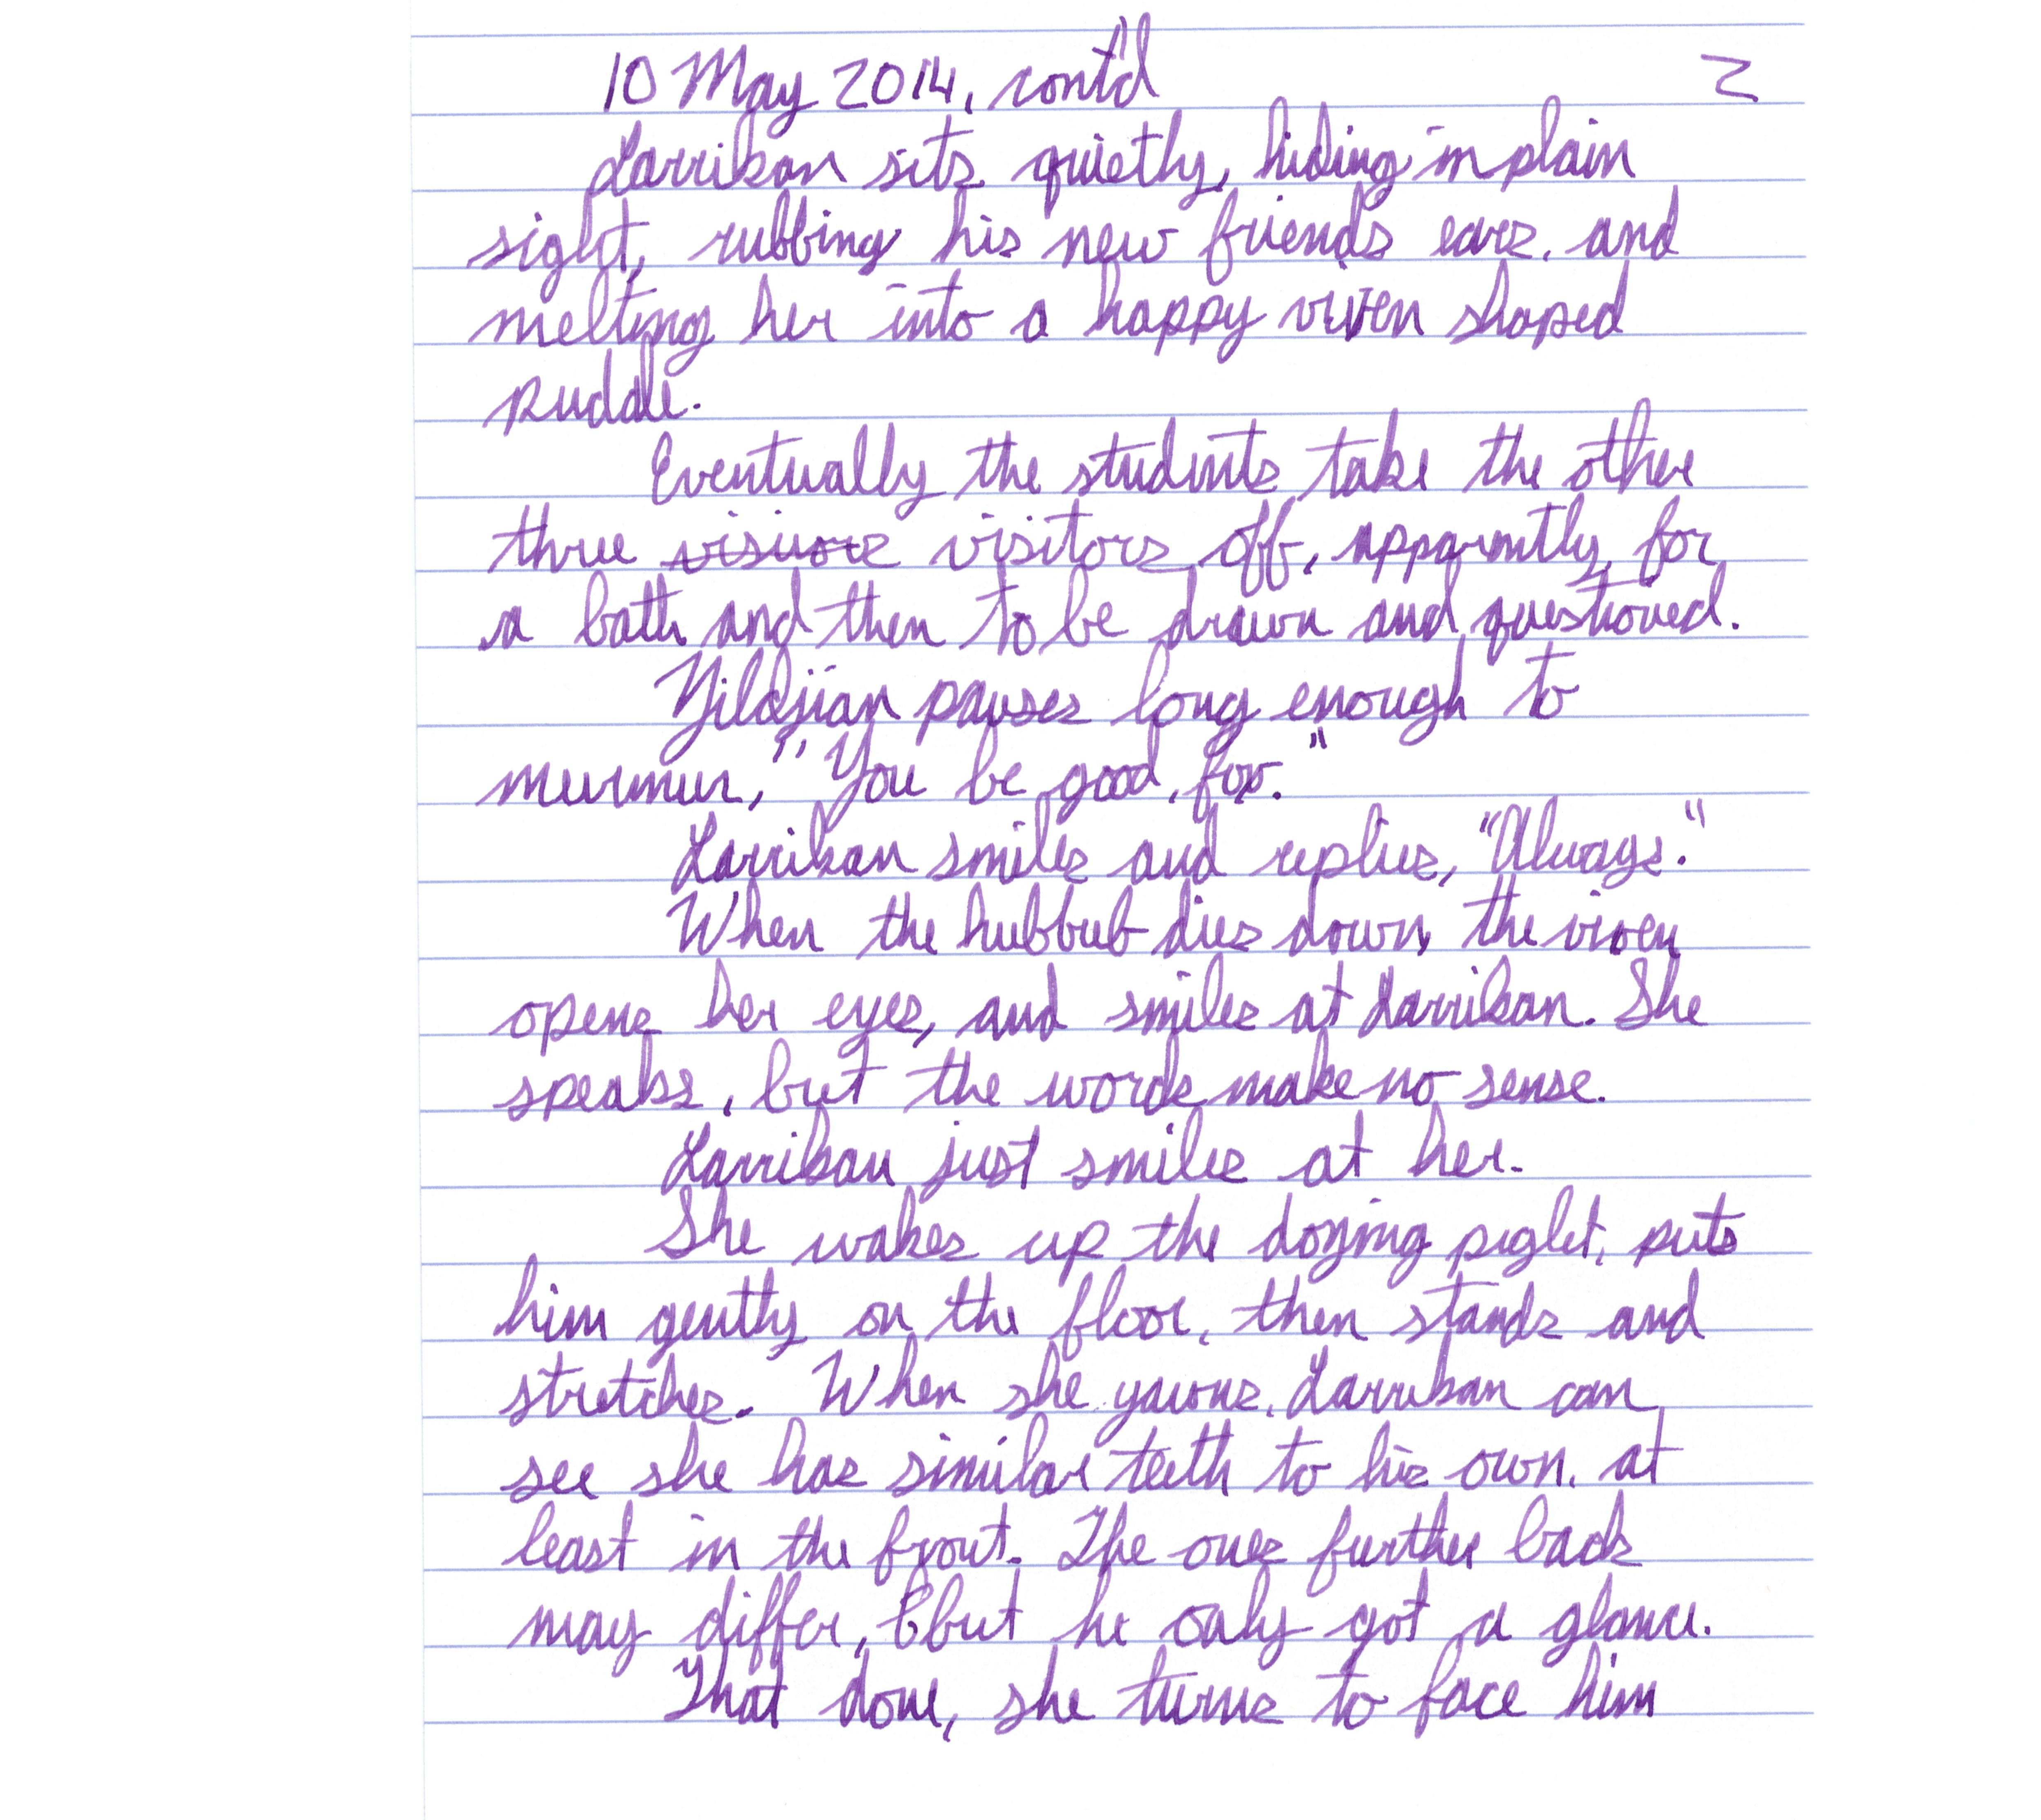 10 May 2014, cont'd 2
Larrikan sits quietly, hiding in plain
sight, rubbing his new friends ears, and
melting her into a happy vixen shaped
puddle.
Eventually the students take the other
three visitors off, apparently, for
a bath and then to be drawn and questioned.
Yildjian pauses long enough to
murmur, "You be good, fox."
Larrikan smiles and replies, "Always."
When the hubbub dies down, the vixen
opens her eyes, and smiles at Larrikan. She
speaks, but the words make no sense.
Larrikan just smiles at her.
She wakes up the dozing piglet, puts
him gently on the floor, then stands and
stretches. When she yawns, Larrikan can
see she has similar teeth to his own, at
least in the front. The ones further back
may differ, bbut he only got a glance.
That done, she turns to face him